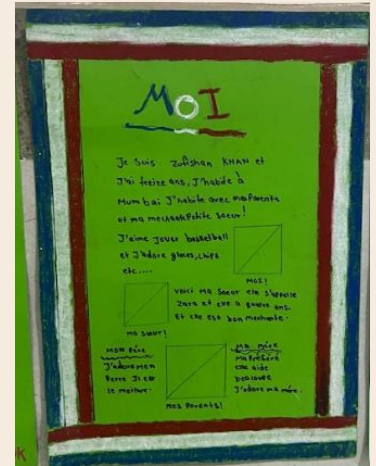 MOI
Je suis Zofishan KHAN et
J'ai treize ans, J'habite à
Mumbai J'habite avec mes Parents
et ma mechante Petite soeur!
J'aime Jouer basketball
et J'adore glaces, chips
etc....
MOI!
voici ma Soeur elle s'appelle
Zara et elle a quatre ans.
Et elle est bon mechante.
ma sœur!
MON Père
J'adore mon
Perre Il est
le meilleur.
Ma mère
elle aide
J'adore ma mère.
Mes Parents!